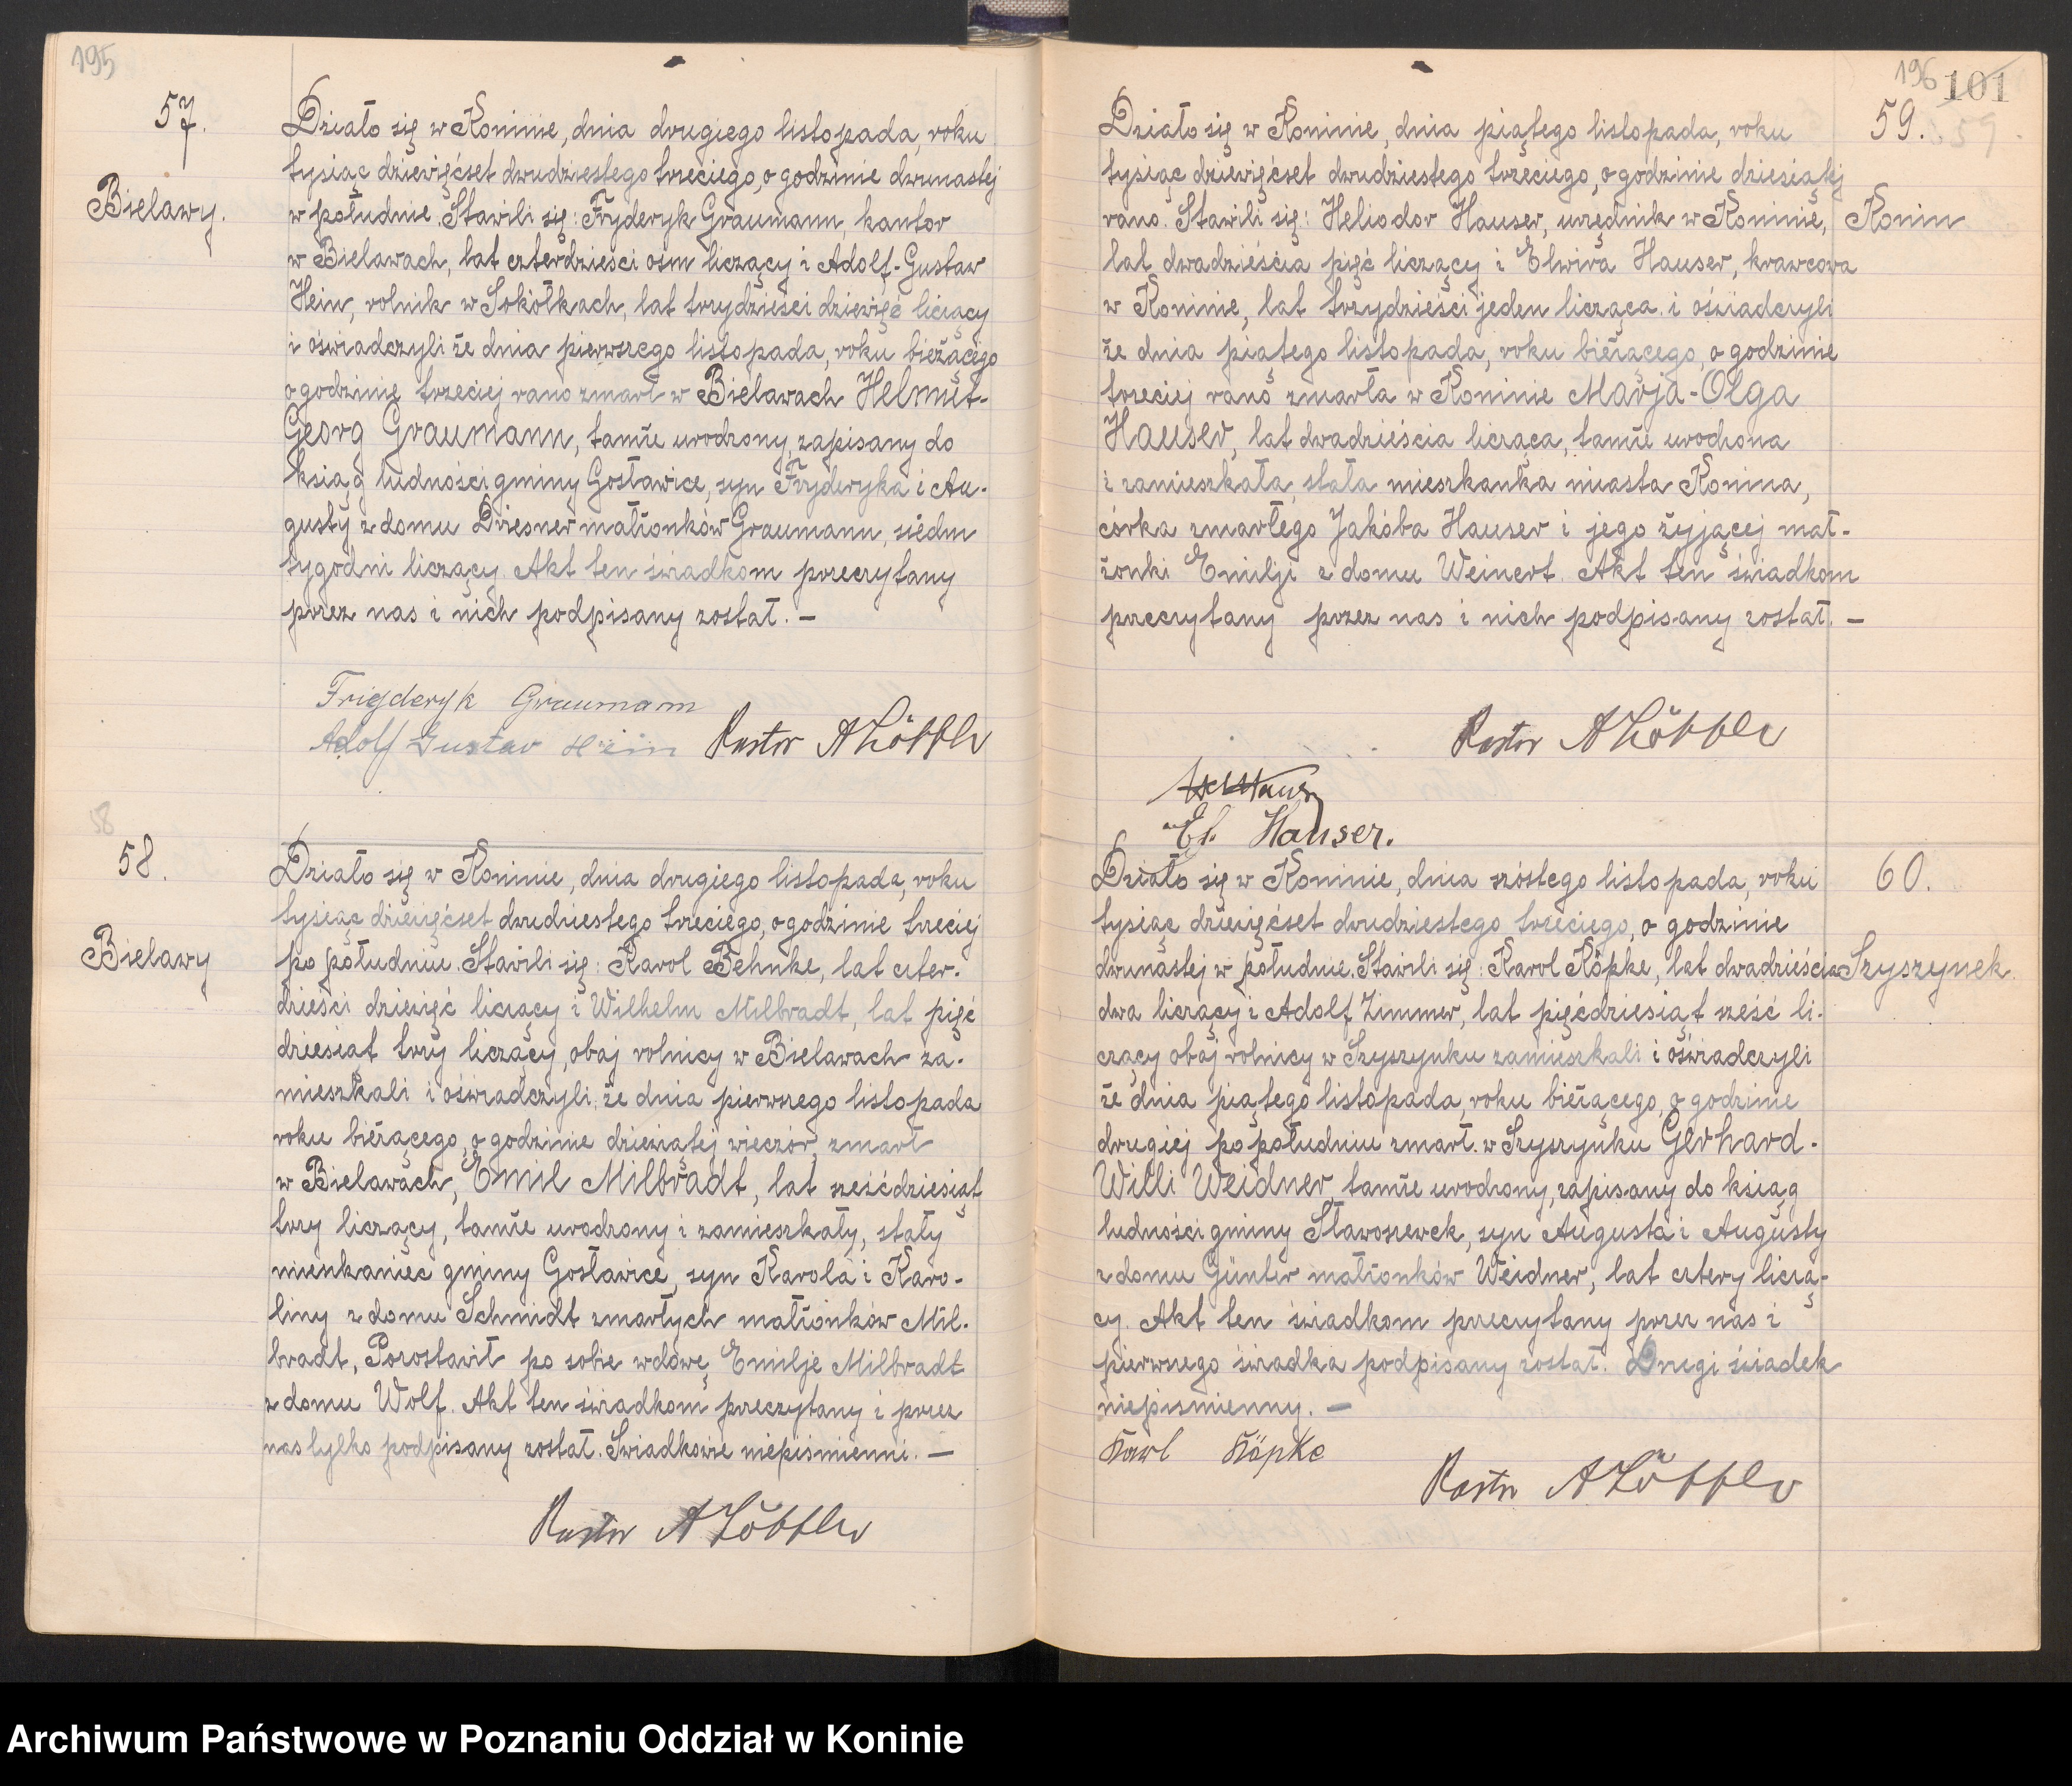 195
57.
Bielawy.
Działo się w Koninie, dnia drugiego listopada, roku
tysiąc dziewięćset dwudziestego trzeciego, o godzinie dwunastej
w południe. Stawili się: Fryderyk Graumann, kantor
w Bielawach, lat czterdzieści ośm liczący i Adolf-Gustaw
Hein, rolnik w Sokółkach, lat trzydzieści dziewięć liczący
i oświadczyli że dnia pierwszego listopada, roku bieżącego
o godzinie trzeciej rano zmarł w Bielawach Helmut-
Georg Graumann, tamże urodzony, zapisany do
ksiąg ludności gminy Gosławice, syn Fryderyka i Au-
gusty z domu Driesner małżonków Graumann, siedm
tygodni liczący. Akt ten świadkom przeczytany
przez nas i nich podpisany został. —
Frigderyk Graumann
Adolf Gustav Hein Pastor A Löffler
58
58.
Bielawy
Działo się w Koninie, dnia drugiego listopada, roku
tysiąc dziewięćset dwudziestego trzeciego, o godzinie trzeciej
po południu. Stawili się: Karol Behnke, lat czter-
dzieści dziewięć liczący i Wilhelm Milbradt, lat pięć
dziesiąt trzy liczący, obaj rolnicy w Bielawach za-
mieszkali i oświadczyli, że dnia pierwszego listopada
roku bieżącego, o godzinie dziewiątej wieczór, zmarł
w Bielawach, Emil Milbradt, lat sześćdziesiąt
trzy liczący, tamże urodzony i zamieszkały, stały
mieszkaniec gminy Gosławice, syn Karola i Karo-
liny z domu Schmidt zmarłych małżonków Mil-
bradt, Pozostawił po sobie wdowę Emilję Milbradt
z domu Wolf. Akt ten świadkom przeczytany i przez
nas tylko podpisany został. Świadkowie niepiśmienni. —
Pastor A Löffler
196 101
59. 59.
Konin
Działo się w Koninie, dnia piątego listopada, roku
tysiąc dziewięćset dwudziestego trzeciego, o godzinie dziesiątej
rano. Stawili się: Heliodor Hauser, urzędnik w Koninie,
lat dwadzieścia pięć liczący i Elwira Hauser, krawcowa
w Koninie, lat trzydzieści jeden licząca. i oświadczyli
że dnia piątego listopada, roku bieżącego, o godzinie
trzeciej rano zmarła w Koninie Marja-Olga
Hauser, lat dwadzieścia licząca, tamże urodzona
i zamieszkała, stała mieszkanka miasta Konina,
córka zmarłego Jakóba Hauser i jego żyjącej mał-
żonki Emilji z domu Weinert. Akt ten świadkom
przeczytany przez nas i nich podpisany został. —
Pastor A Löffler
El. Hauser.
60.
Szyszynek.
Działo się w Koninie, dnia szóstego listopada, roku
tysiąc dziewięćset dwudziestego trzeciego, o godzinie
dwunastej w południe. Stawili się: Karol Köpke, lat dwadzieścia
dwa liczący i Adolf Zimmer, lat pięćdziesiąt sześć li-
czący obaj rolnicy w Szyszynku zamieszkali i oświadczyli
że dnia piątego listopada, roku bieżącego, o godzinie
drugiej po południu zmarł. w Szyszynku Gerhard-
Willi Weidner, tamże urodzony, zapisany do ksiąg
ludności gminy Sławoszewek, syn Augusta i Augusty
z domu Günter małżonków Weidner, lat cztery liczą-
cy. Akt ten świadkom przeczytany przez nas i
pierwszego świadka podpisany został. Drugi świadek
niepiśmienny. —
Karl Köpke
Pastor A Löffler
Archiwum Państwowe w Poznaniu Oddział w Koninie